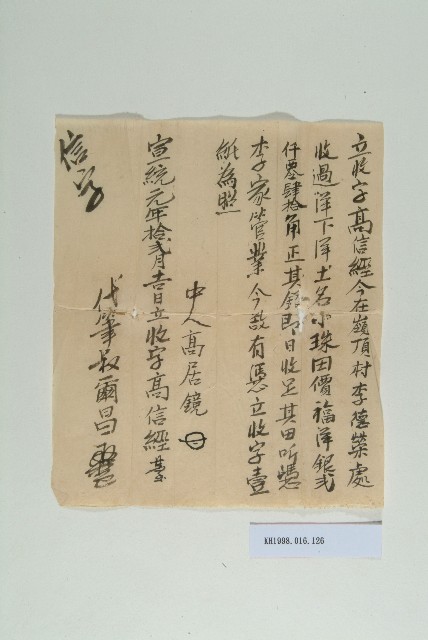 立收字高信經今在嶺頂村李德榮處
收過洋下洋土名小珠田價福洋銀弍
仟零肆拾角正其銀即日收足其田听憑
李家管業今欲有憑立收字壹
紙為照
中人高居鏡
宣統元年拾弍月吉日立收字高信經
代筆叔爾昌
信字
KH1998.016.126